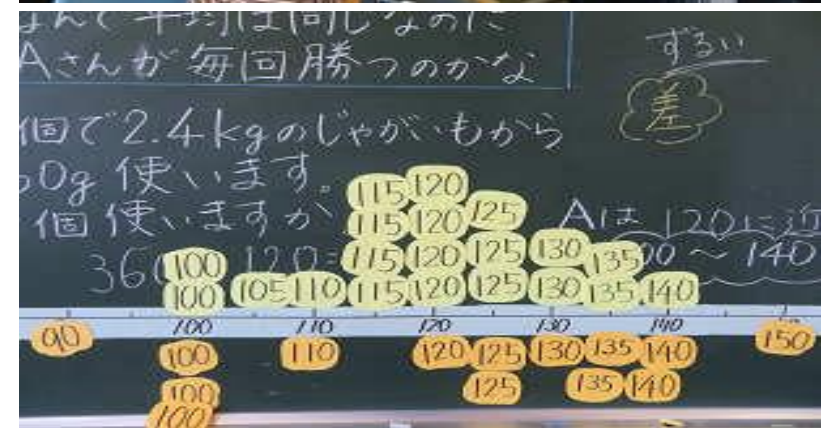 なんで平均は同じなのに
Aさんが毎回勝つのかな
ずるい
差
個で2.4kgのじゃがいもから
0g 使います。
個使いますか
Aは120に近
36 120=
00～140
115 120
115 120 125
100 115 120 125 130 135
100 105 110 115 120 125 130 135 140
100 110 120 130 140
90 100 110 120 125 130 135 140 150
100 125 135 140
100